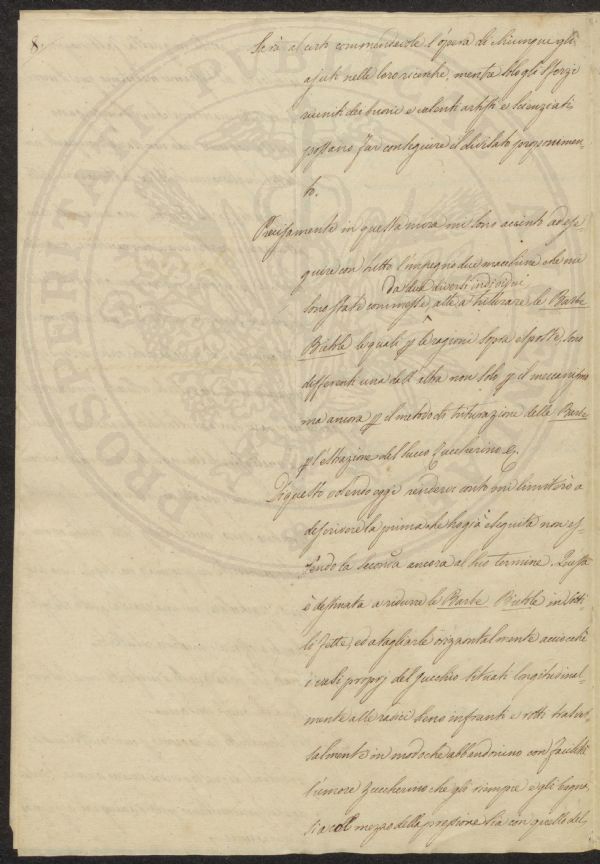 8.
Sarà al certo commendevole l'opera di chiunque gli
ajuti nelle loro ricerche, mentre blogli sforzi
riuniti dei buoni e valenti artisti e scienziati
possano far conseguire il divisato proponimen-
to.
Precisamente in questa mira mi sono accinto ad ese-
guire con tutto l'impegno due macchine che mi
da due diversi individui
sono state commesse, atte a triturare le Barbe
Bietole le quali p le ragioni sopra esposte, sono
differenti una dell'altra non solo p il meccanismo
ma ancora p il metodo di triturazione delle Barbe
p l'estrazione del succo Zuccherino &.
Di questo volendo oggi rendere conto mi limiterò a
descrivere la prima che ho già eseguita non es-
sendo la seconda ancora al suo termine. Questa
è destinata a ridurre le Barbe Bietole in sotti-
li fette, ed a tagliarle orizzontalmente acciocchè
i vasi proprj del Succhio situati longitudinal-
mente alle radici sieno infranti e rotti trasver-
salmente in modo che abbandonino con facilità
l'umore zuccherino che gli riempie e gli bagna,
sia coll mezzo della pressione sia con quello del-
PROSPERITATI PUBLICAE